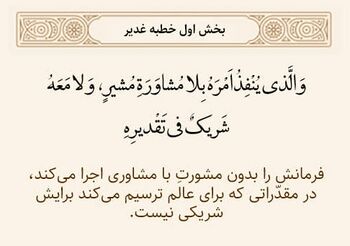 بخش اول خطبه غدیر
وَالَّذی یُنْفِذُ اَمْرَهُ بِلا مُشاوَرَةِ مُشیرٍ، وَلا مَعَهُ
شَریکٌ فی تَقْدیرِهِ
فرمانش را بدون مشورتِ با مشاوری اجرا می‌کند،
در مقدّراتی که برای عالم ترسیم می‌کند برایش
شریکی نیست.